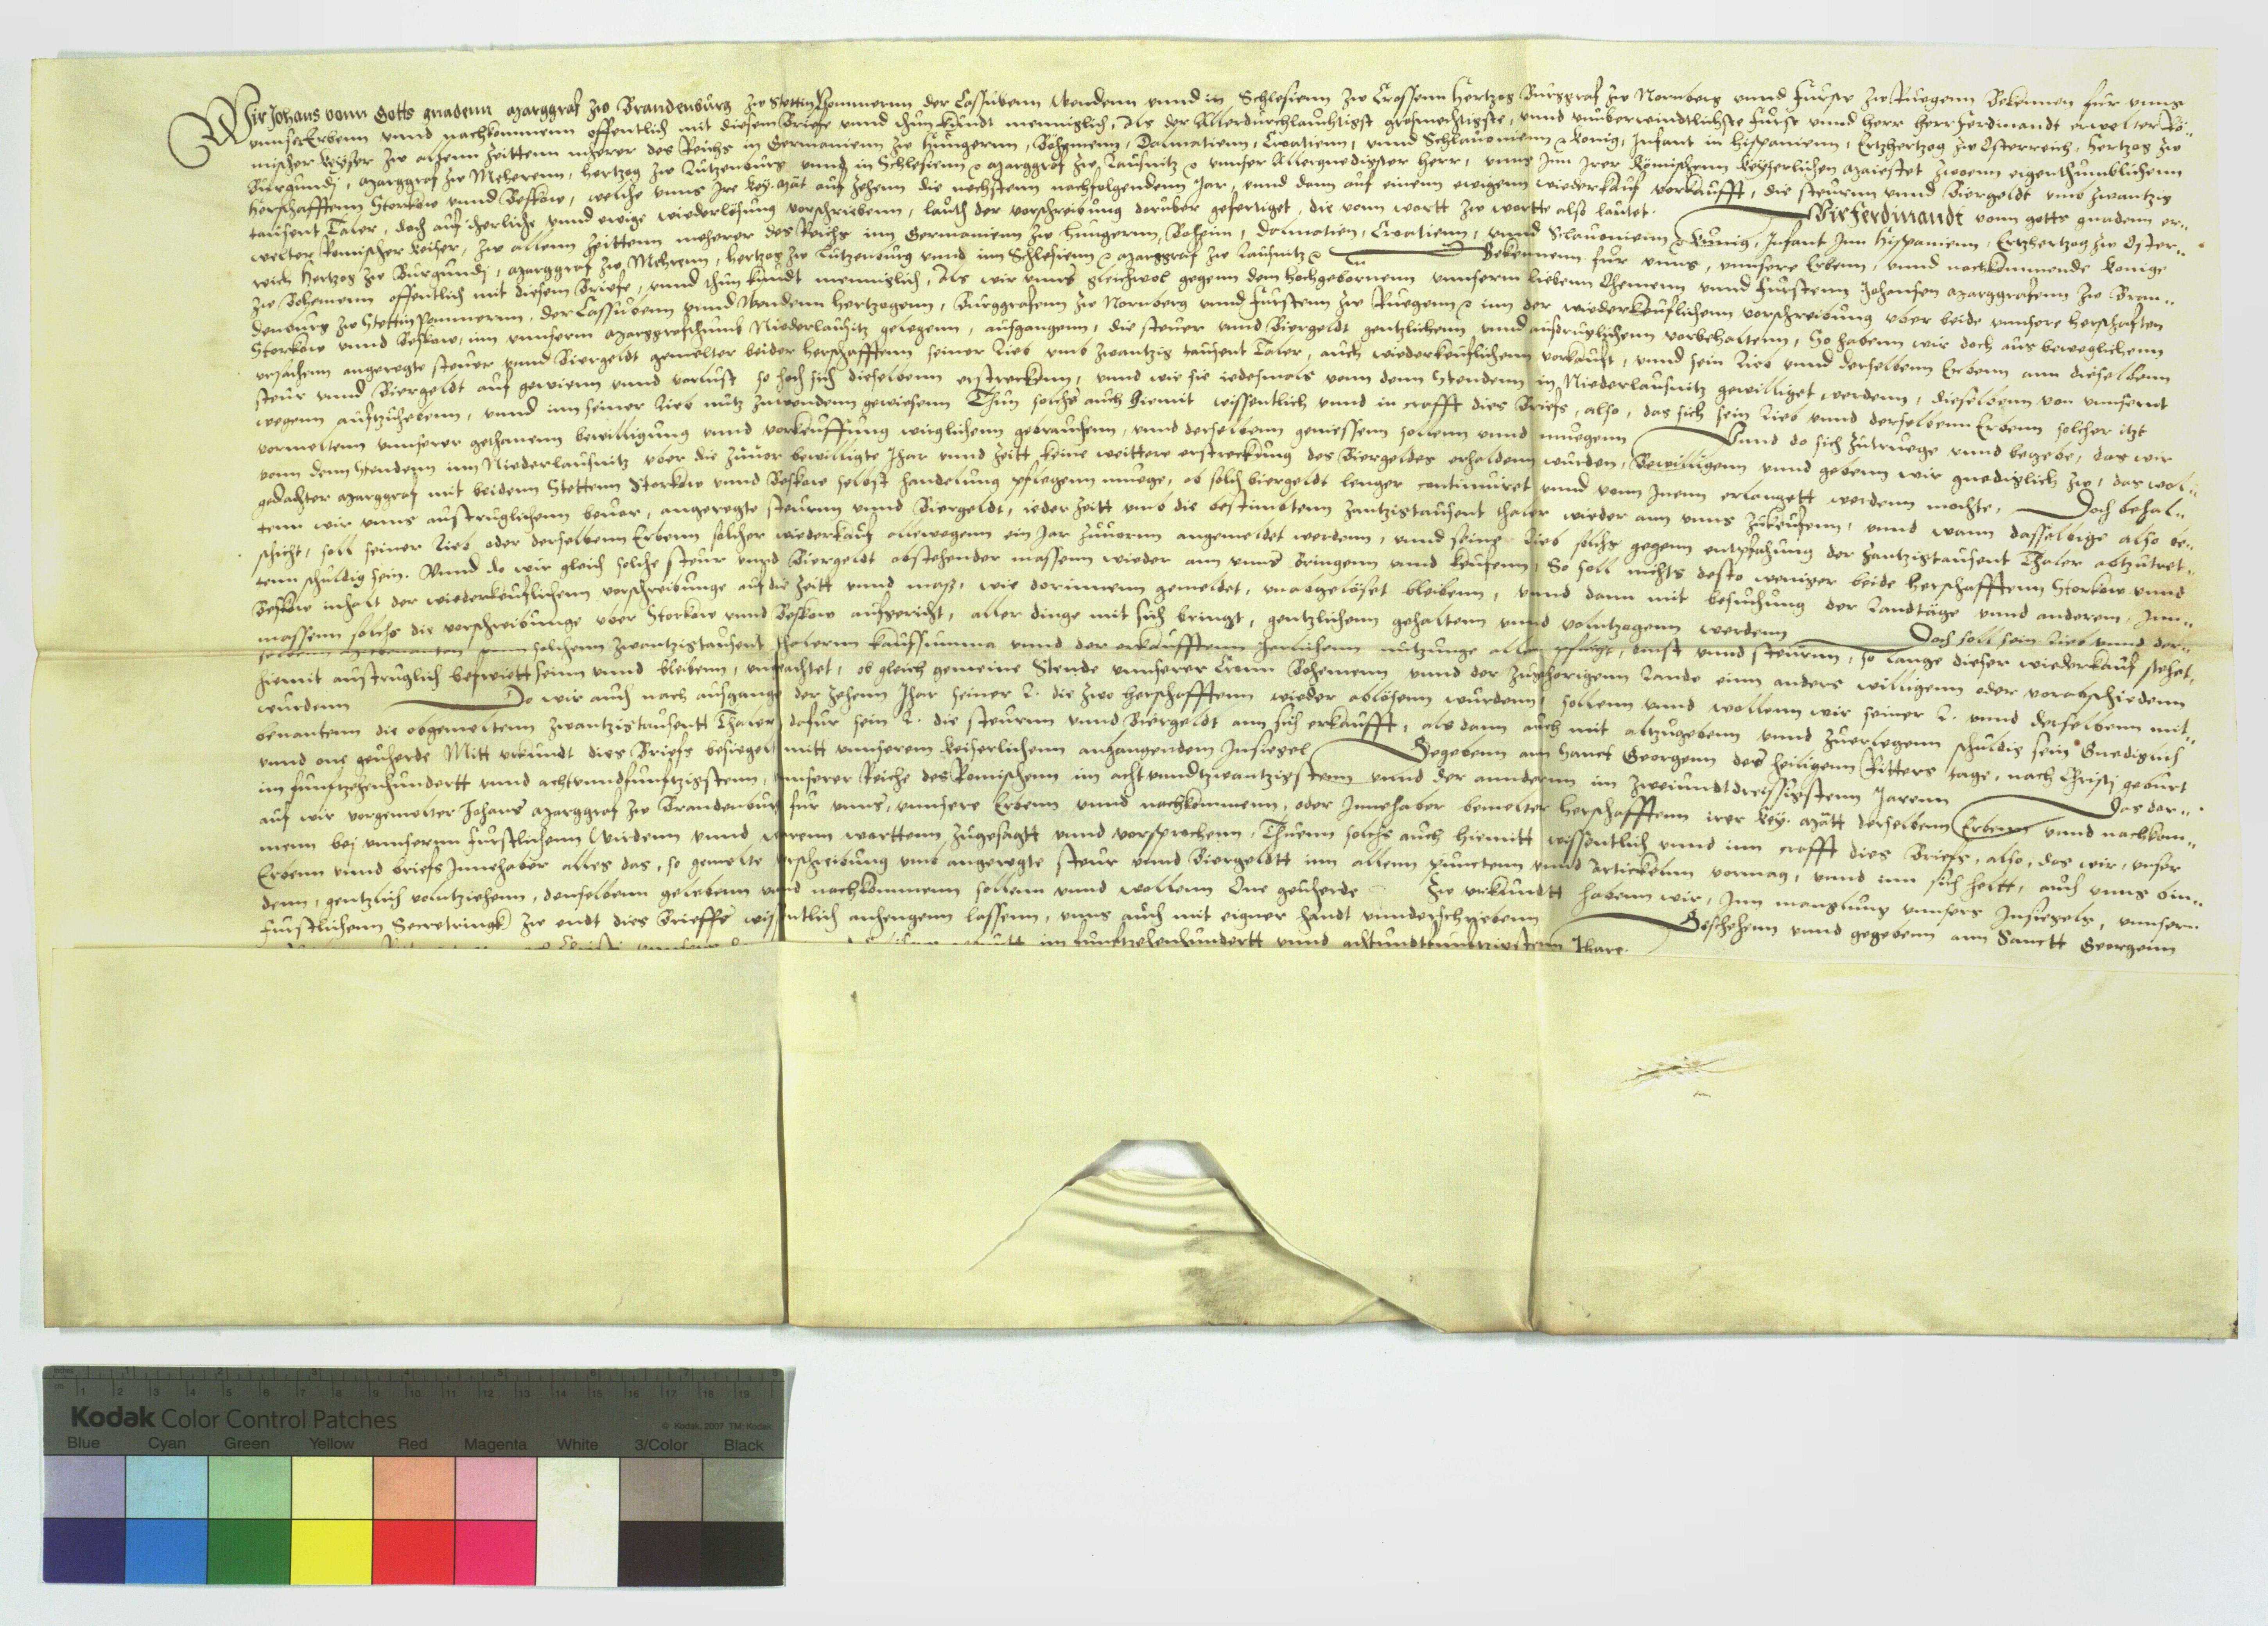 Wir Johans vonn Gotts gnadenn Marggraf zw Brandenburg zw Stettin Pommernn der Cassubenn Wendenn vnnd in Schlesienn zw Crossenn Hertzog Burggraf zw Nornberg vnnd Furste zw Ruegenn Bekennen fur vnns
vnnser Erbenn vnnd nachkommenn offentlich mit diesem Briefe vnnd thun kundt menniglich, Als der Allerdurchlauchtigst grosmechtigste, vnnd vnuberwindtlichste Furst vnnd Herr Herr Ferdinandt erwelter Rö-
mischer Keyser zw allenn Zeittenn mherer des Reichs in Germanienn zw Hungernn, Böhmenn, Dalmatienn, Croatienn, vnnd Schlauonienn Konig, Infant in Hispanienn, Ertzhertzog zw Osterreich, Hertzog zw
Burgundj, Marggraf zw Meherenn, Hertzog zw Lutzenburg vnnd in Schlesienn Marggraf zw Lausnitz vnnser Allergnedigster Herr, vnns Inn Irer Römischenn Keyserlichen Maiestet zweenn eigenthumblichenn
Herschafftenn Storkow vnnd Beskow, welche vnns Ire Key. Mat auf zehenn die nechstenn nachfolgendenn Jar, vnnd dann auf einenn ewigenn wiederkauf vorkaufft, die steurnn vnnd Biergeldt vmb zwantzig
tausent Taler, doch auf iherliche vnnd ewige wiederlösung vorschriebenn, lauth der vorschreibung doruber gefertiget, die vonn wortt zw wortte also lautet. Wir Ferdinandt vonn gotts gnadenn er-
welter Romischer Keiser, zw allenn Zeittenn meherer des Reichs inn Germanienn zw Hungernn, Beheim, Dalmatien, Croatienn, vnnd Sclauonienn Kunig, Infant Inn Hispanienn, Ertzhertzog zw Oster-
reich Hertzog zw Burgundj, Marggraf zw Mehrenn, Hertzog zw Lutzenburg vnnd inn Schlesienn Marggraf zw Lausnitz Bekennenn fur vnns, vnnsere Erbenn, vnnd nachkommende Konige
zw Behemenn offentlich mit diesem Briefe, vnnd thun kundt menniglich, Als wir vnns gleichwol gegenn dem Hochgebornenn vnnserm liebenn Ohemenn vnnd Furstenn Johansen Marggrafenn zw Bran-
denburg zw Stettin Pommernn, der Cassubenn vnnd Wendenn Hertzogenn, Burggrafenn zw Nornberg vnnd Furstenn zw Ruegenn inn der wiederkeuflichenn vorschreibung vber beide vnnsere Herschaften
Storkow vnnd Beskow, inn vnnserm Marggrafthumb Niederlausitz gelegenn, ausgangenn, die steuer vnnd Biergeldt gentzlichenn vnnd ausdruglichenn vorbehaltenn, So habenn wir doch aus beweglichenn
vrsachenn angeregte steuer vnnd Biergeldt gemelter beider Herschafftenn seiner Lieb vmb zwantzig tausent Taler, auch wiederkeuflichenn vorkauft, vnnd sein Lieb vnnd derselbenn Erbenn ann dieselbenn
steur vnnd Biergeldt auf gewienn vnnd vorlust so hoch sich dieselbenn erstreckenn, vnnd wie sie iedesmals vonn denn Stendenn in Niederlausnitz gewilliget werdenn, dieselbenn von vnnsernt
wegenn aufzuhebenn, vnnd inn seiner Lieb nutz zuwendenn gewiesenn Thun solchs auch hiemit wissentlich vnnd in crafft dies Briefs, also, das sich sein Lieb vnnd derselbenn Erbenn solcher itzt
vormeltenn vnnserer gethanenn bewilligung vnnd vorkeuffung wirglichenn gebrauchenn, vnnd derselbenn geniessenn sollenn vnnd muegenn Vnnd do sich zutruege vnnd begebe, das wir
vonn denn Stendenn inn Niederlausnitz vber die zuuor bewilligte Jhar vnnd Zeitt keine weittere erstreckung des Biergeldes erhaldenn wurden, Bewilligenn vnnd gebenn wir gnediglich zw, das wol-
gedachter Marggraf mit beidenn Stettenn Storkow vnnd Beskow selbst handelung pflegenn muege, ob solch biergeldt lenger continuiret vnnd vonn Jnenn erlangett werdenn mochte, Doch behal-
tenn wir vnns austruglichenn beuor, angeregte steurnn vnnd Biergeldt, ieder Zeitt vmb die bestimbtenn zwantzigtausent thaler wieder ann vnns zukeufenn, vnnd wann dasselbige also be-
schicht, soll seiner Lieb oder derselbenn Erbenn solcher wiederkauf allewegenn ein Jar zuuornn angemeldet werdenn, vnnd seine Lieb solchs gegenn entpfahung der zwantzigtausent Thaler abzutret-
tenn schuldig sein. Vnnd do wir gleich solche steur vnnd Biergeldt obstehender massenn wieder ann vnns bringenn vnnd keufenn, So soll nichts desto weniger beide Herschafftenn Storkow vnnd
Beskow inhalt der wiederkeuflichenn vorschreibunge auf die Zeitt vnnd mass, wie dorinnenn gemeldet, vnabgelöset bleibenn, vnnd dann mit besuchung der Landtäge vnnd anderem, Inn-
massenn solchs die vorschreibunge vber Storkow vnnd Beskow aufgericht, aller dinge mit sich bringt, gentzlichenn gehaltenn vnnd volntzogenn werdenn Doch soll sein Lieb vnnd der-
solchenn zwantzigtausent thalernn kaufsumma vnnd der erkaufftenn Jerlichenn nutzunge aller pflicht, dinst vnnd steurnn, so lange dieser wiederkauf stehet,
hiemit austruglich befreiett seinn vnnd bleibenn, vngeachtet, ob gleich gemeine Stende vnnserer Cronn Behemenn vnnd der zugehorigenn Lande einn anders willigenn oder vorabschiedenn
wurdenn Do wir auch nach ausgange der zehenn Jhar seiner L. die zwo Herschafftenn wieder ablösenn wurdenn, sollenn vnnd wollenn wir seiner L. vnnd derselbenn mit-
benantenn die obgemeltenn zwantzigtausentt Thaler dafur sein L. die steurnn vnnd Biergeldt ann sich erkaufft, als dann auch mit abzugebenn vnnd zuerlegenn schuldig sein Gnediglich
vnnd one geuherde Mitt vrkundt dies Briefs besiegelt mitt vnnserem Keiserlichenn anhangendem Insiegel Gegebenn am Sanct Georgenn des heiligenn Ritters tage, nach Christj geburt
im funfzehenhundertt vnnd achtvnndfunfftzigstenn, vnnserer Reiche des Romischenn im achtvnndtzwantzigstenn vnnd der anndernn im zweivndtdreissigstenn Jarenn Das dar-
auf wir vorgemelter Johans Marggraf zw Brandenburg fur vnns, vnnsere Erbenn vnnd nachkommenn, oder Innehaber bemelter Herschafftenn irer Key. Matt derselbenn Erbenn vnnd nachkom-
menn bej vnnsernn Furstlichenn Wirdenn vnnd warenn worttenn zugesagtt vnnd vorsprochenn, Thuenn solchs auch hiemitt wissentlich vnnd inn crafft dies Briefs, also, das wir, vnser
Erbenn vnnd briefs Innehaber alles das, so gemelte vorschreibung vmb angeregte steur vnnd Biergeldtt inn allenn puncten vnnd Artickelnn vormag, vnnd inn sich heltt, auch vnns bin-
denn, gentzlich volntziehenn, denselbenn gelebenn vnnd nachkommenn sollenn vnnd wollenn One geuherde Zw vrkundtt habenn wir, Inn manglung vnnsers Insiegels, vnnsern
Furstlichenn Secretringk zw endt dies Brieffs wissentlich anhengenn lassenn, vnns auch mit eigner handt vnnderschriebenn Geschehenn vnnd gegebenn ann Sanctt Georgenn
im funfftzehenhundertt vnnd achtundtfunftzigstenn Jhare.
Kodak Color Control Patches
© Kodak, 2007 TM: Kodak
Blue Cyan Green Yellow Red Magenta White 3/Color Black